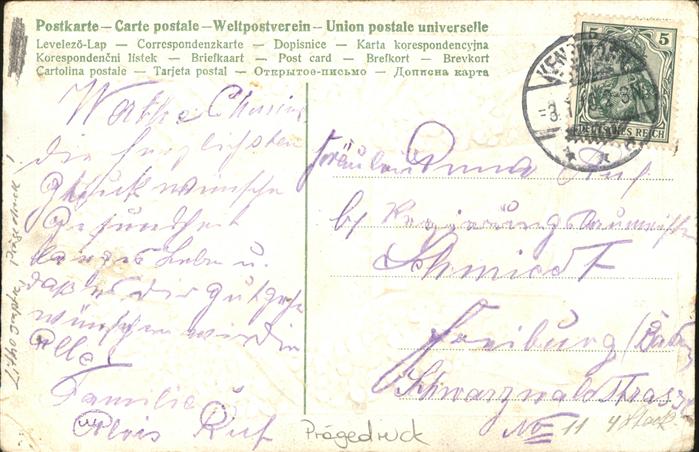 Postkarte – Carte postale – Weltpostverein – Union postale universelle
Levelező-Lap — Correspondenzkarte — Dopisnice — Karta korespondencyjna
Korespondenční lístek — Briefkaart — Post card — Brefkort — Brevkort
Cartolina postale — Tarjeta postal — Открытое-письмо — Дописна карта
5 5
DEUTSCHES REICH
die herzlichsten
Glückwünsche
Gesundheit
langes Leben u.
daß es dir gut gehe
wünschen wir die
Alle
Familie
Alois Ruf
Fräulein Anna Ruf
bj Regierungsbaumeister
Schmiedt
Freiburg (Baden
Schwarzwaldstrasze
No 11 4 Stock
Prägedruck
Lithographie, Prägedruck!